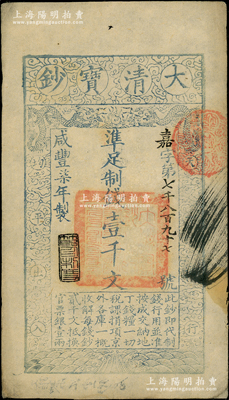 上海陽明拍賣
大清寶鈔
嘉字第七千八百九十七號
準足制錢壹千文
咸豐柒年製
此鈔即代制
錢行用並准
按成交納地
丁錢糧一切
稅課捐項京
外各庫一概
收解每錢鈔
貳千文抵換
官票銀壹兩
上海陽明拍賣